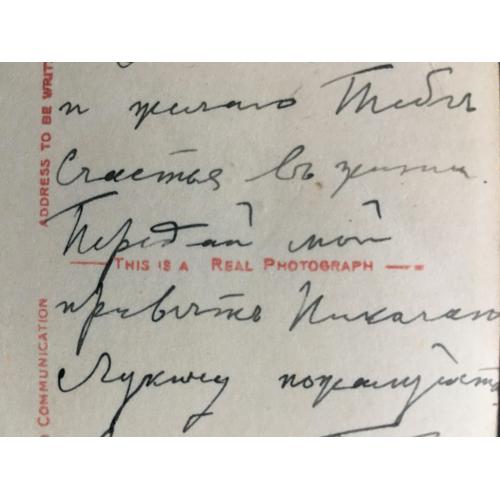 и желаю Тебѣ
Счастья въ жизни.
Передай мой
THIS IS A REAL PHOTOGRAPH
привѣтъ Николаю
Лукичу пожалуйста
ADDRESS TO BE WRIT
COMMUNICATION